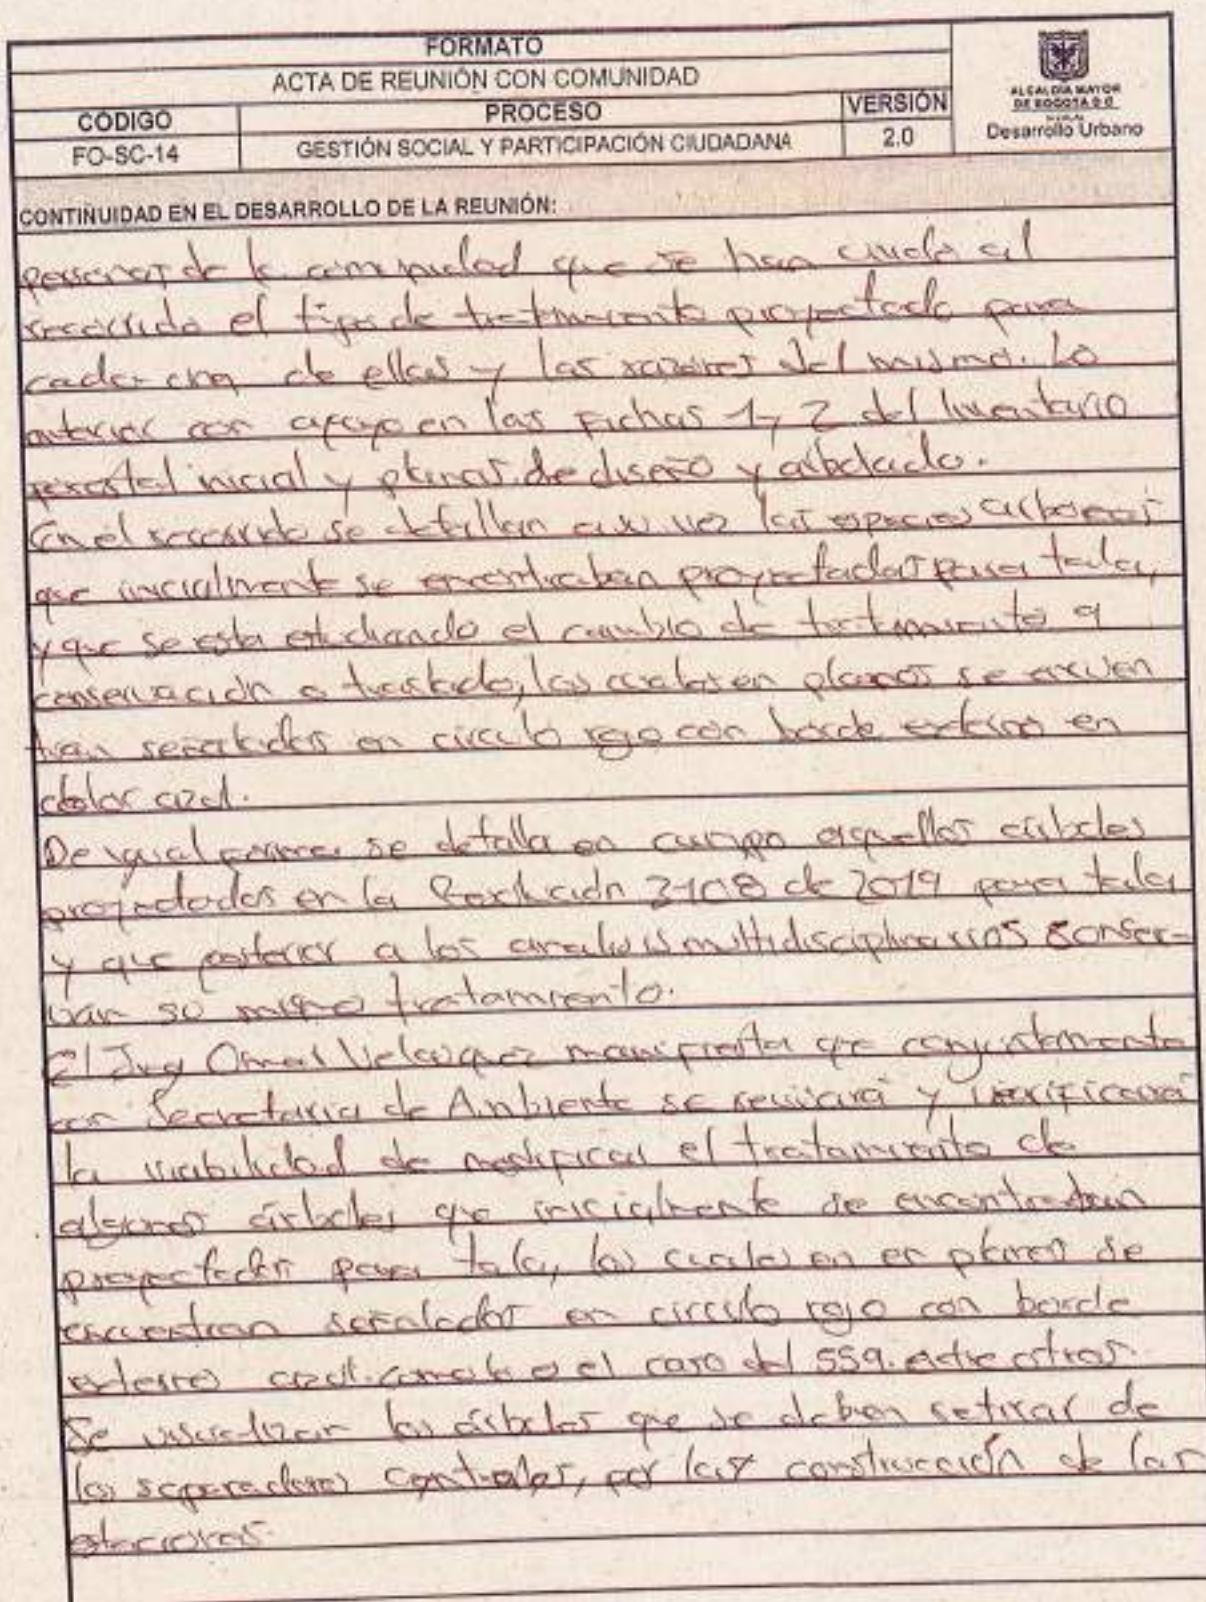 FORMATO
ACTA DE REUNIÓN CON COMUNIDAD
CÓDIGO
PROCESO
VERSIÓN
FO-SC-14
GESTIÓN SOCIAL Y PARTICIPACIÓN CIUDADANA
2.0
ALCALDÍA MAYOR
DE BOGOTÁ D.C.
Desarrollo Urbano
CONTINUIDAD EN EL DESARROLLO DE LA REUNIÓN:
personas de la comunidad que se han unido al
recorrido el tipo de tratamiento proyectado para
cada una de ellas y las razones del mismo. Lo
anterior con apoyo en las Fichas 1 y 2 del Inventario
forestal inicial y planos de diseño y arbolado.
En el recorrido se detallan a su vez las especies arboreas
que inicialmente se encontraban proyectadas para tala,
y que se esta estudiando el cambio de tratamiento a
conservación o traslado, las cuales en planos se encuen
tran señalados en circulo rojo con borde externo en
color azul.
De igual forma se detalla en campo aquellos árboles
proyectados en la Resolución 3108 de 2019 para tala
y que posterior a los analisis multidisciplinarios conser-
van su mismo tratamiento.
El Ing Omar Velasquez manifiesta que conjuntamente
con Secretaria de Ambiente se revisará y verificará
la viabilidad de modificar el tratamiento de
algunos árboles que inicialmente se encontraban
proyectados para tala, los cuales en en planos se
encuentran señalados en circulo rojo con borde
externo azul. como lo es el caso del 559. entre otros.
Se visualizan los árboles que se deben retirar de
los separadores centrales, por la construcción de las
estaciones.